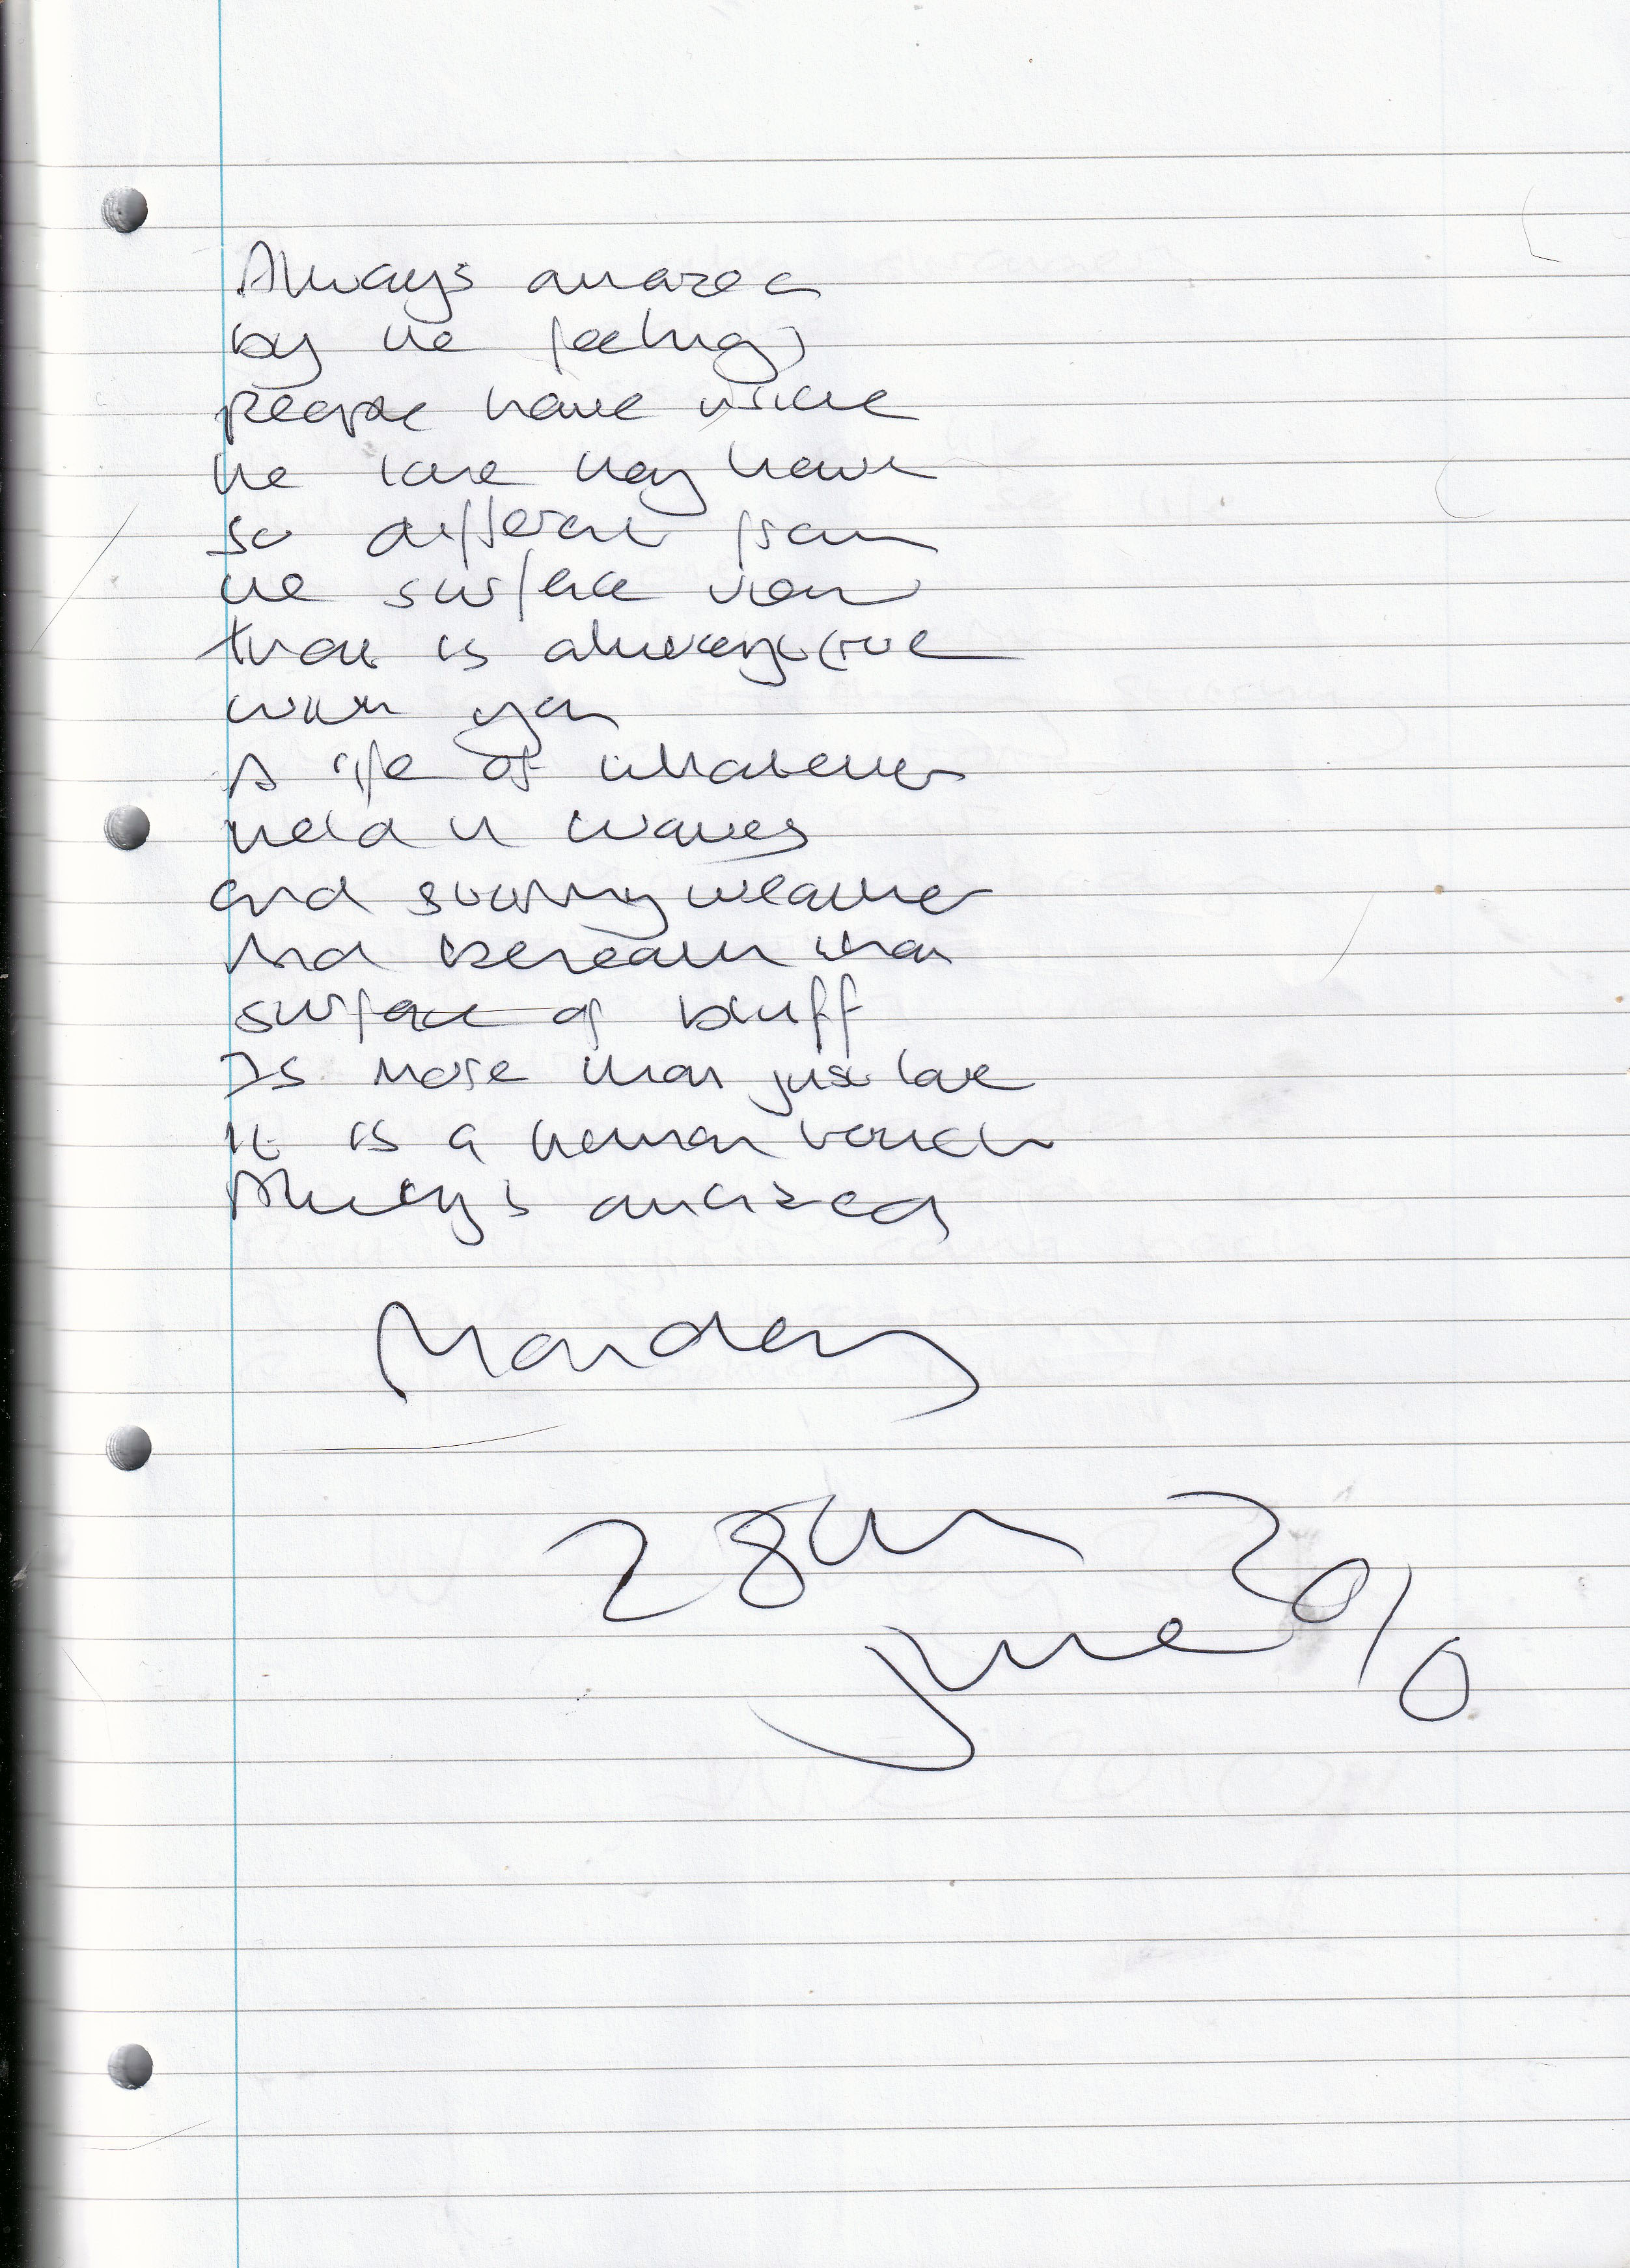 Always amazed
by the feelings
people have inside
the love they have
so different from
the surface view
that is always true
with you
A life of whatever
held in waves
and sunny weather
And beneath that
surface of bluff
Is more than just love
It is a human touch
Always amazed
Monday
28th June 2010